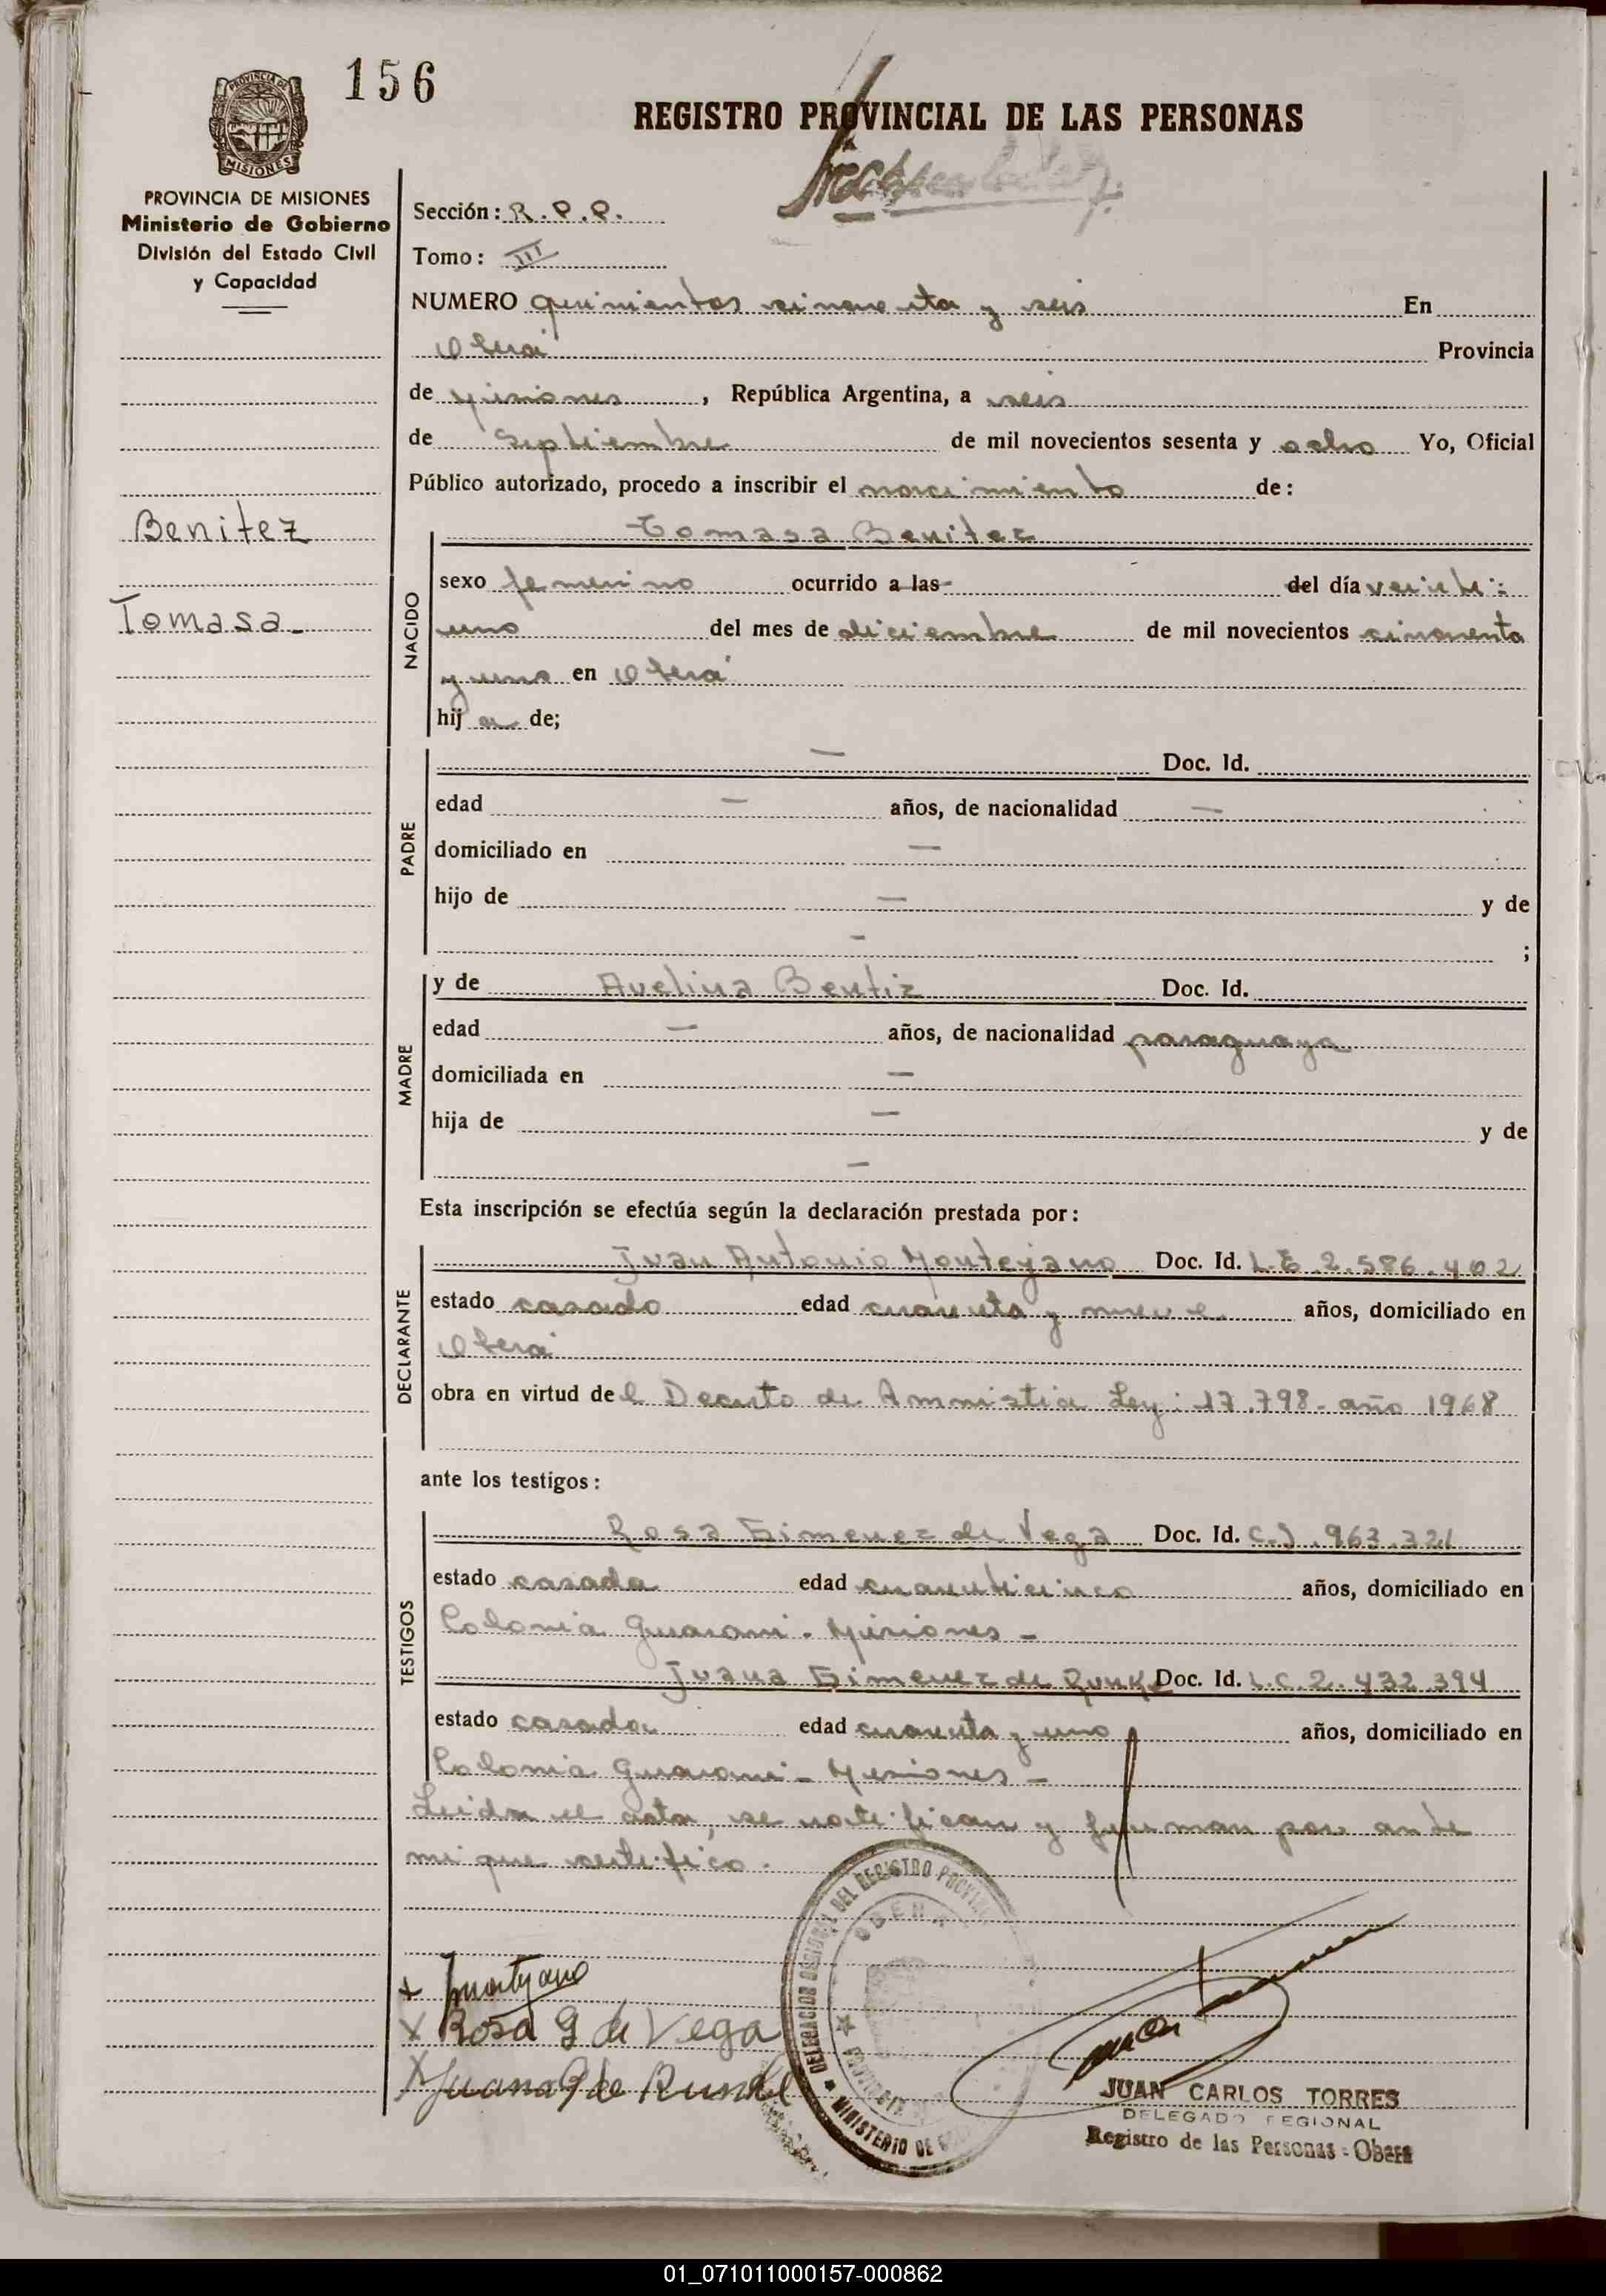 156
REGISTRO PROVINCIAL DE LAS PERSONAS
PROVINCIA DE
MISIONES
PROVINCIA DE MISIONES
Ministerio de Gobierno
División del Estado Civil
y Capacidad
Sección: R.P.P.
Tomo: III
NUMERO quinientos cincuenta y seis En
Oberá Provincia
de Misiones, República Argentina, a seis
de Septiembre de mil novecientos sesenta y ocho Yo, Oficial
Público autorizado, procedo a inscribir el nacimiento de:
Benitez
Tomasa
Tomasa Benitez
NACIDO
sexo femenino ocurrido a las del día veinti-
uno del mes de diciembre de mil novecientos cincuenta
y uno en Oberá
hij a de;
PADRE
— Doc. Id.
edad — años, de nacionalidad —
domiciliado en —
hijo de — y de
— ;
MADRE
y de Avelina Bentiz Doc. Id.
edad — años, de nacionalidad paraguaya
domiciliada en —
hija de — y de
—
Esta inscripción se efectúa según la declaración prestada por:
DECLARANTE
Juan Antonio Monteyano Doc. Id. L.E 2.586.402
estado casado edad cuarenta y nueve años, domiciliado en
Oberá
obra en virtud de l Decreto de Amnistia Ley: 17.798- año 1968
ante los testigos:
TESTIGOS
Rosa Gimenez de Vega Doc. Id. C.I. 963.321
estado casada edad cuarenticinco años, domiciliado en
Colonia Guarani - Misiones -
Juana Gimenez de Runke Doc. Id. L.C. 2.432.394
estado casada edad cuarenta y uno años, domiciliado en
Colonia Guarani - Misiones -
Leida el acta, se notifican y firman por ante
mi que certifico.
x Montyano
x Rosa G de Vega
x Juana G de Runke
DELEGACION REGIONAL DEL REGISTRO PROVIN
OBERA
MINISTERIO DE
JUAN CARLOS TORRES
DELEGADO REGIONAL
Registro de las Personas - Obera
01_071011000157-000862